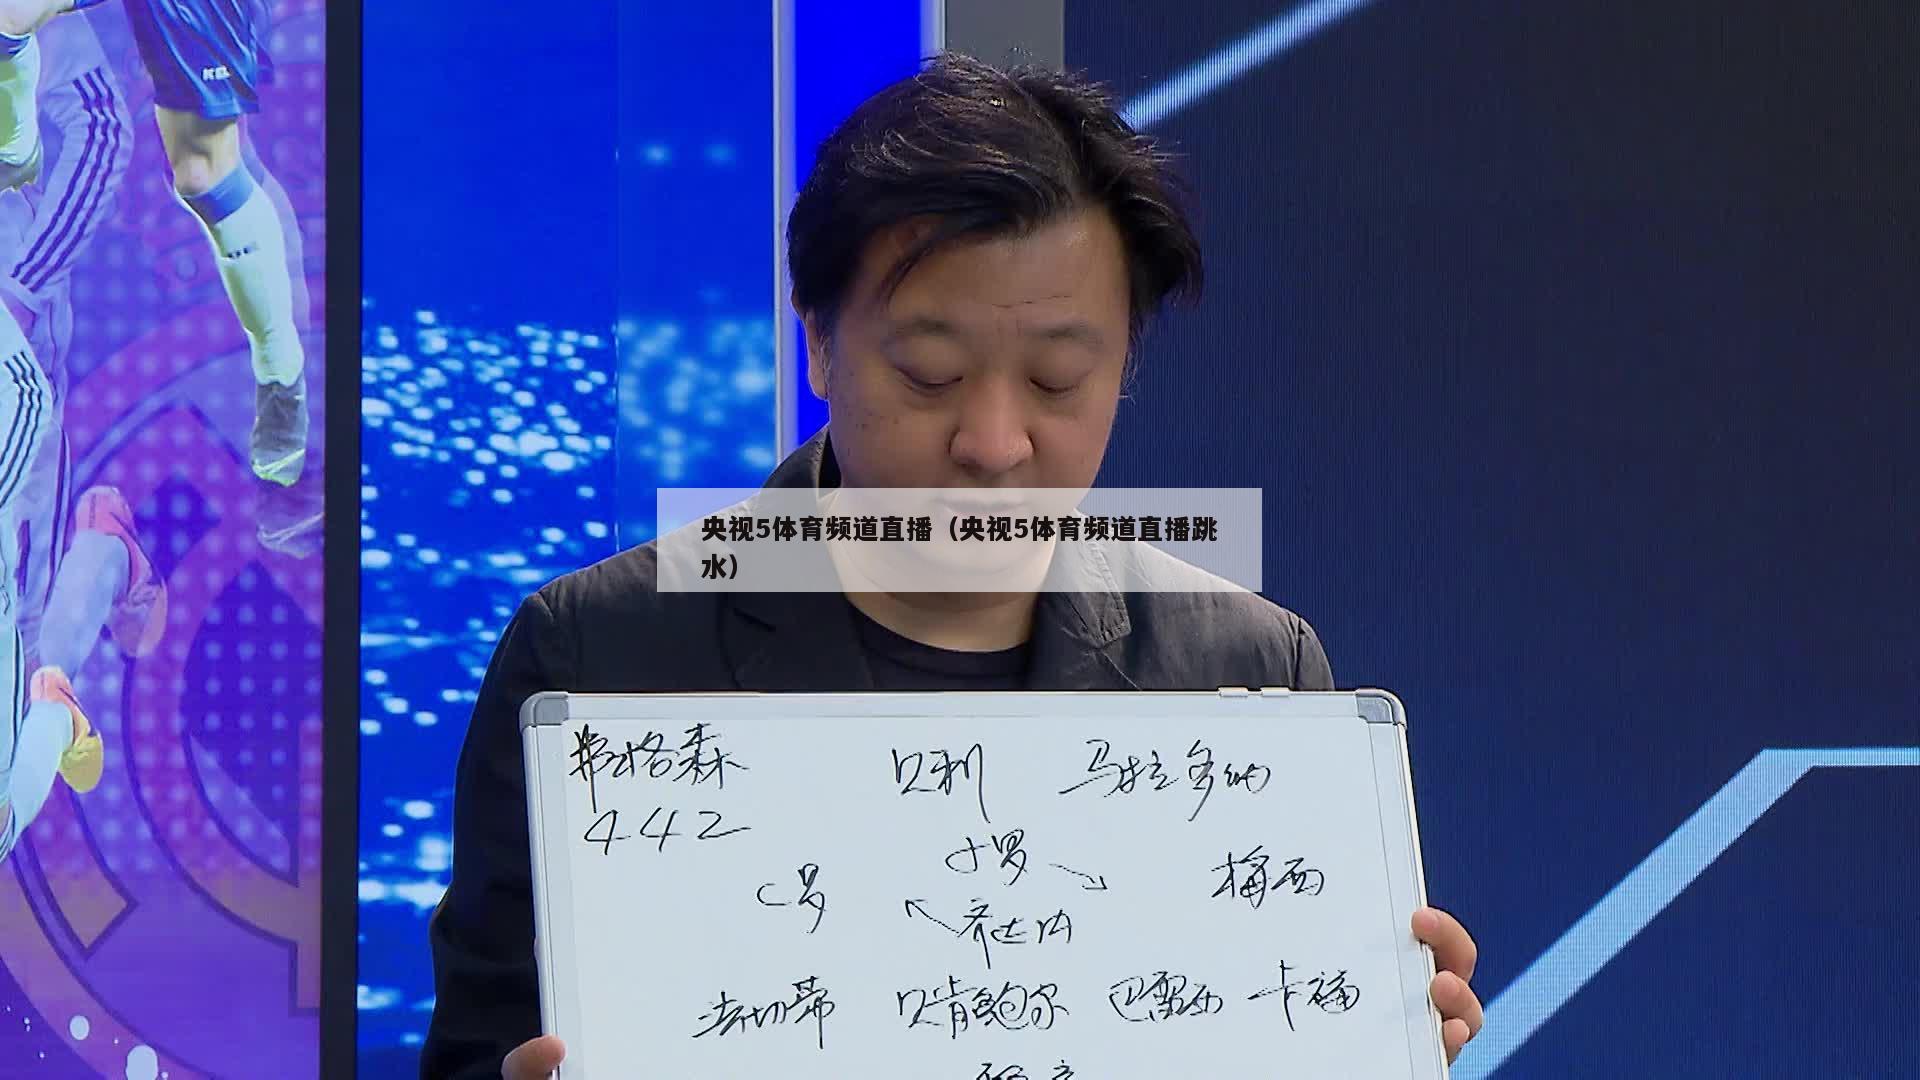 央视5体育频道直播（央视5体育频道直播跳
水）
弗格森 贝利 马拉多纳
442
小罗
C罗 梅西
齐达内
法切蒂 贝肯鲍尔 巴雷西 卡福